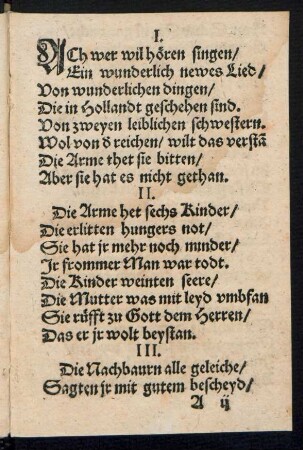 I.
ACh wer wil hören singen/
Ein wunderlich newes Lied/
Von wunderlichen dingen/
Die in Hollandt geschehen sind.
Von zweyen leiblichen schwestern.
Wol von d̕ reichen/ wilt das verstā
Die Arme thet sie bitten/
Aber sie hat es nicht gethan.
II.
Die Arme het sechs Kinder/
Die erlitten hungers not/
Sie hat jr mehr noch minder/
Jr frommer Man war todt.
Die Kinder weinten seere/
Die Mutter was mit leyd vmbfan
Sie rüfft zu Gott dem Herren/
Das er jr wolt beystan.
III.
Die Nachbaurn alle geleiche/
Sagten jr mit gutem bescheyd/
A ij